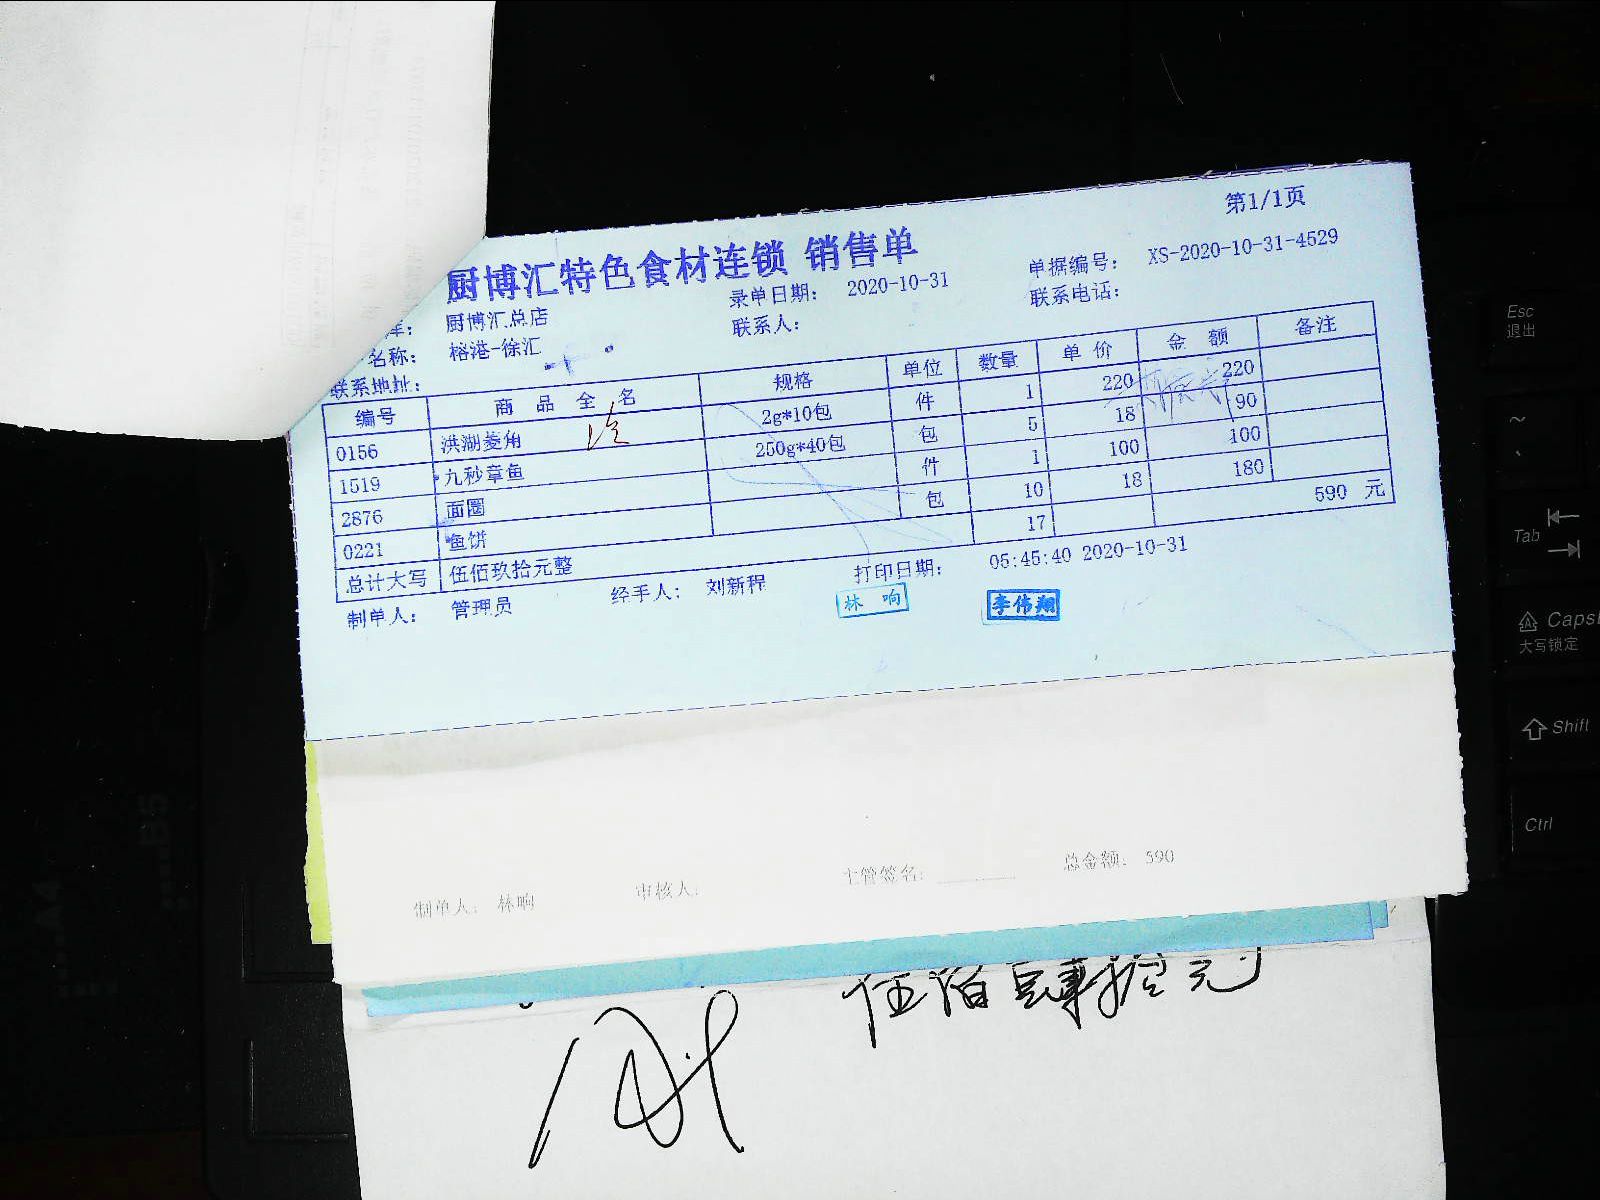 第1/1页
厨博汇特色食材连锁 销售单
录单日期： 2020-10-31
单据编号： XS-2020-10-31-4529
库： 厨博汇总店
联系人：
联系电话：
名称： 榕港-徐汇
联系地址：
编号 商品全名 规格 单位 数量 单价 金额 备注
0156 洪湖菱角 2g*10包 件 1 220 220
1519 九秒章鱼 250g*40包 包 5 18 90
2876 面圈 件 1 100 100
0221 鱼饼 包 10 18 180
总计大写 伍佰玖拾元整 17 590 元
制单人： 管理员 经手人： 刘新程 打印日期： 05:45:40 2020-10-31
林 响
李伟翔
制单人： 林响 审核人： 主管签名： 总金额： 590
伍佰肆拾元
Esc
退出
~
Tab
Caps
大写锁定
Shift
Ctrl